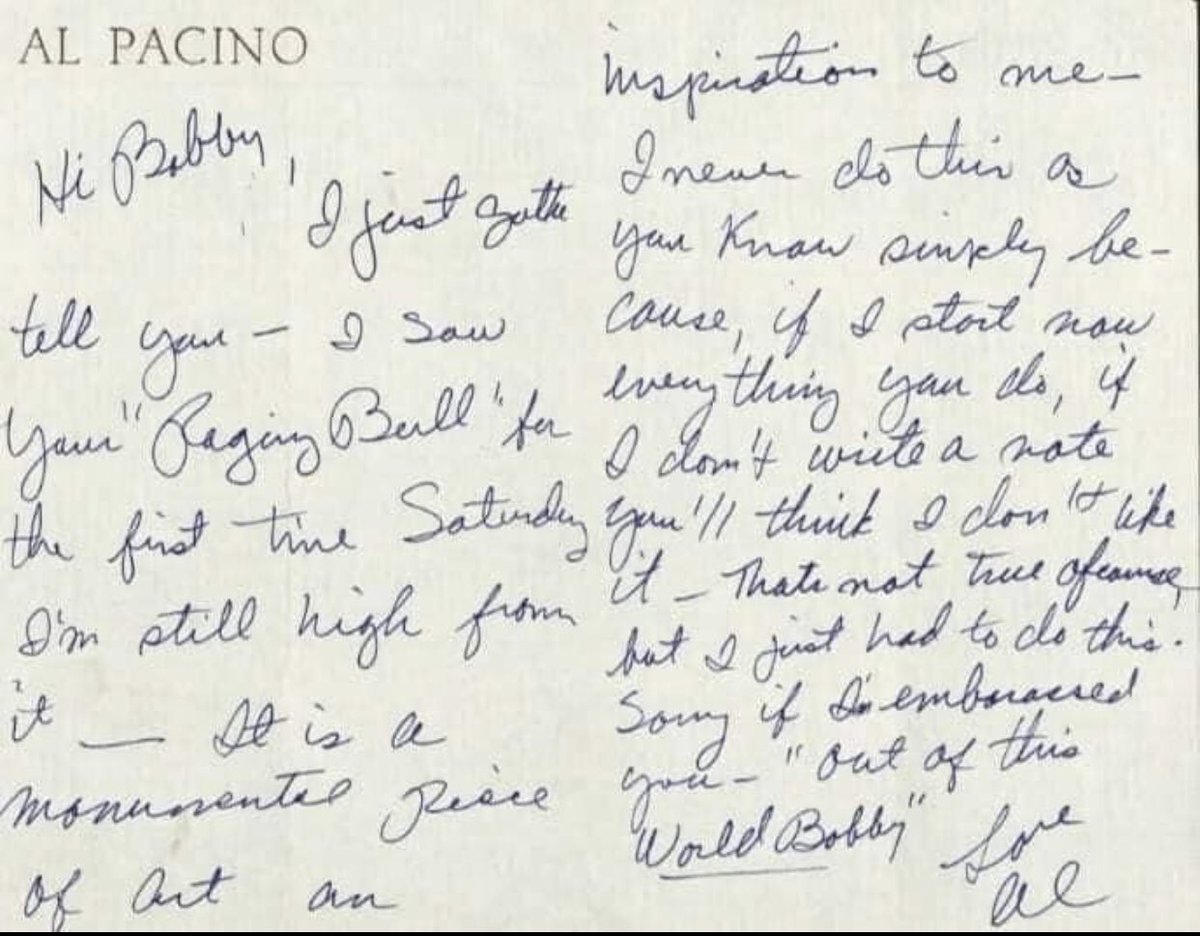 AL PACINO
Hi Bobby,
I just gotta
tell you — I saw
your "Raging Bull" for
the first time Saturday
I'm still high from
it — It is a
monumental piece
of art an
inspiration to me —
I never do this as
you know simply be-
cause, if I start now
everything you do, if
I don't write a note
you'll think I don't like
it — Thats not true ofcourse,
but I just had to do this.
Sorry if I embarassed
you — "out of this
World Bobby"
Love
Al